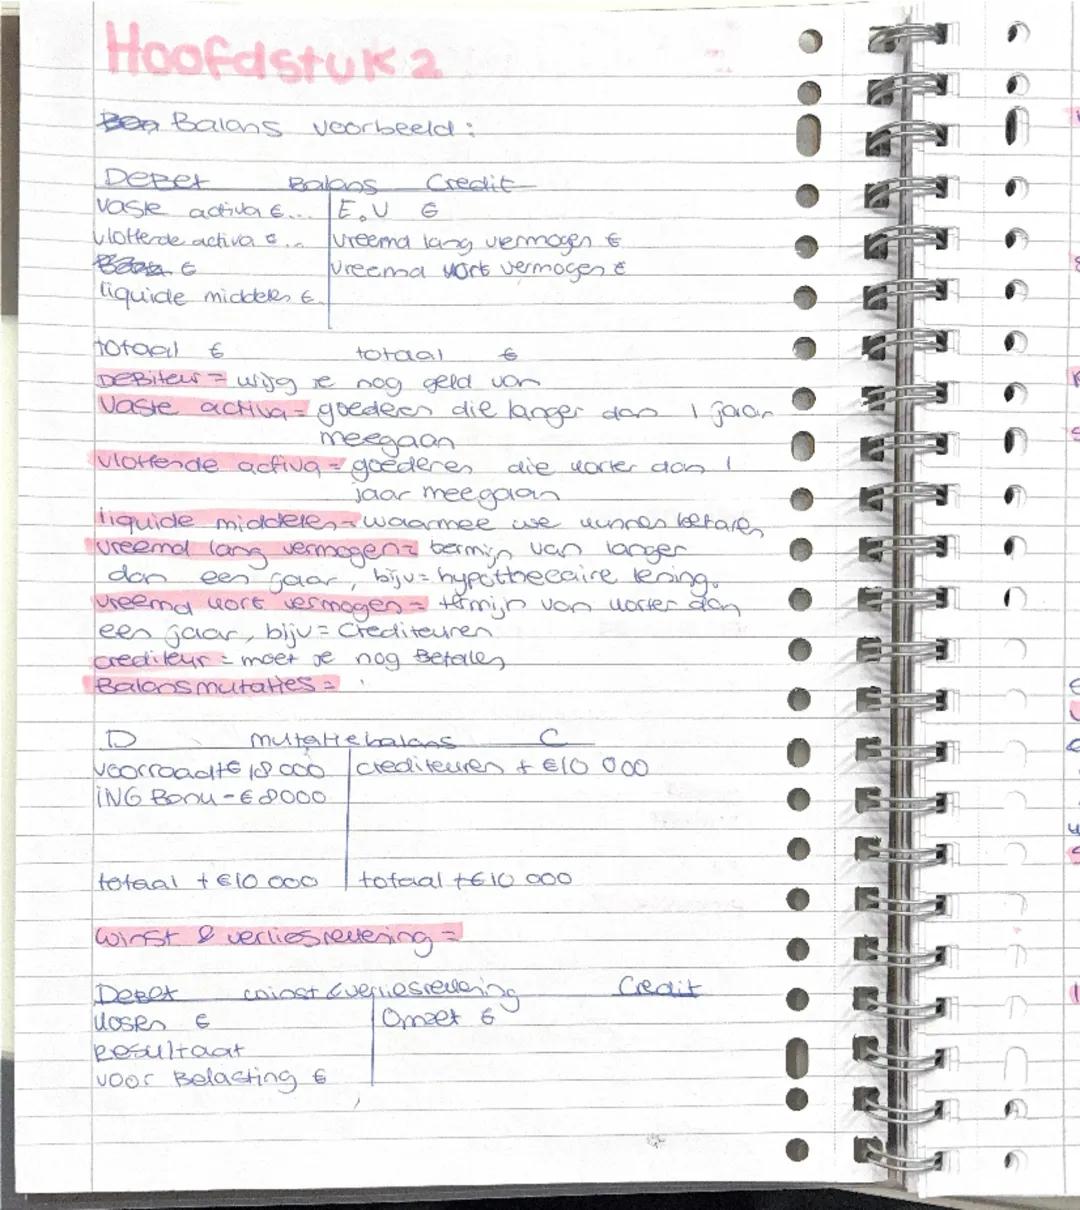 Hoofdstuk 2
Balans voorbeeld:
Debet Balans Credit
vaste activa €... E.V €
vlottende activa €... vreemd lang vermogen €
€ vreemd kort vermogen €
liquide middelen €
totaal € totaal €
Debiteur = krijg je nog geld van
Vaste activa = goederen die langer dan 1 jaar
meegaan
vlottende activa = goederen die korter dan 1
jaar meegaan
liquide middelen = waarmee we kunnen betalen
vreemd lang vermogen = termijn van langer
dan een jaar, bijv = hypothecaire lening.
vreemd kort vermogen = termijn van korter dan
een jaar, bijv = Crediteuren
crediteur = moet je nog Betalen
Balansmutaties =
D mutatiebalans C
voorraad + € 18 000 crediteuren + €10 000
ING Bank - € 8000
totaal + €10 000 totaal + €10 000
winst & verliesrekening =
Debet winst & verliesrekening Credit
kosten € Omzet €
Resultaat
voor Belasting €